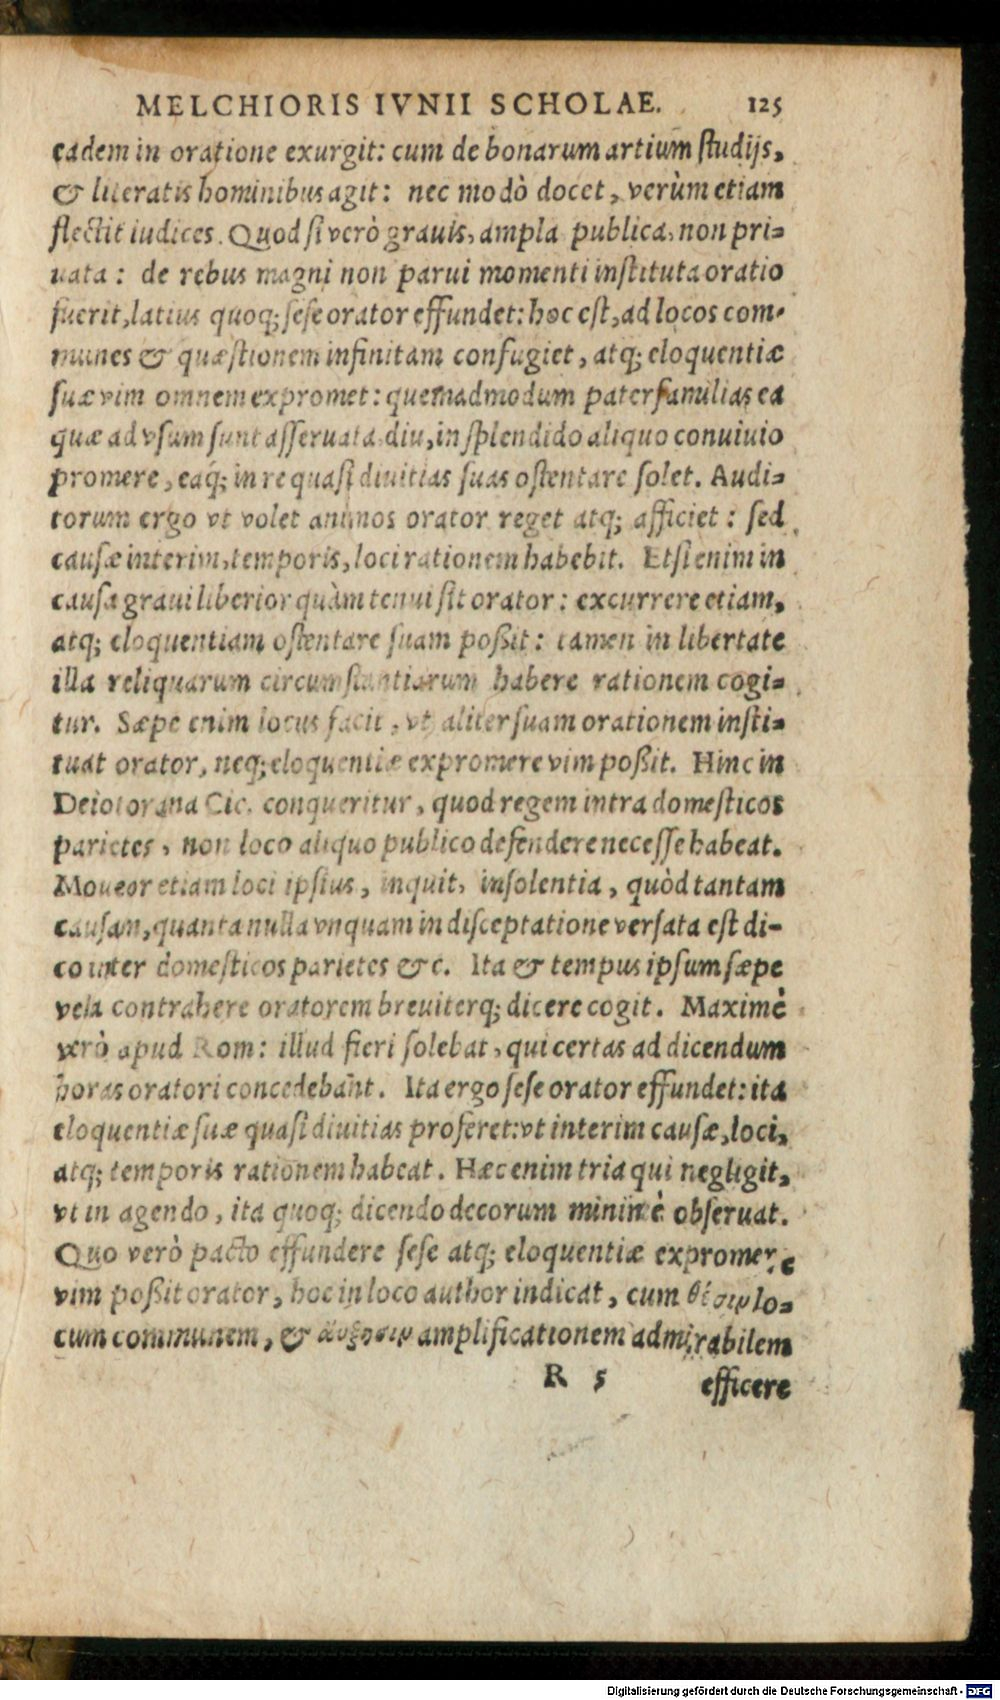 MELCHIORIS IVNII SCHOLAE. 125
eadem in oratione exurgit: cum de bonarum artium studijs,
& literatis hominibus agit: nec modò docet, verùm etiam
flectit iudices. Quod si verò grauis, ampla publica, non pri=
uata: de rebus magni non parui momenti instituta oratio
fuerit, latius quoq; sese orator effundet: hoc est, ad locos com=
munes & quæstionem infinitam confugiet, atq; eloquentiæ
suæ vim omnem expromet: quemadmodum paterfamilias ea
quæ ad vsum sunt asseruata diu, in splendido aliquo conuiuio
promere, eaq́; in re quasi diuitias suas ostentare solet. Audi=
torum ergo vt volet animos orator reget atq; afficiet: sed
causæ interim, temporis, loci rationem habebit. Etsi enim in
causa graui liberior quàm tenui sit orator: excurrere etiam,
atq; eloquentiam ostentare suam poßit: tamen in libertate
illa reliquarum circumstantiarum habere rationem cogi=
tur. Sæpe enim locus facit, vt aliter suam orationem insti=
tuat orator, neq; eloquentiæ expromere vim poßit. Hinc in
Deiotorana Cic. conqueritur, quod regem intra domesticos
parietes, non loco aliquo publico defendere necesse habeat.
Moueor etiam loci ipsius, inquit, insolentia, quòd tantam
causam, quanta nulla vnquam in disceptatione versata est di-
co inter domesticos parietes &c. Ita & tempus ipsum sæpe
vela contrahere oratorem breuiterq; dicere cogit. Maximè
verò apud Rom: illud fieri solebat, qui certas ad dicendum
horas oratori concedebant. Ita ergo sese orator effundet: ita
eloquentiæ suæ quasi diuitias proferet: vt interim causæ, loci,
atq; temporis rationem habeat. Hæc enim tria qui negligit,
vt in agendo, ita quoq; dicendo decorum minimè obseruat.
Quo verò pacto effundere sese atq; eloquentiæ expromere
vim poßit orator, hoc in loco author indicat, cum θέσιν lo=
cum communem, & ἄυξησιν amplificationem admirabilem
R 5 efficere
Digitalisierung gefördert durch die Deutsche Forschungsgemeinschaft - DFG